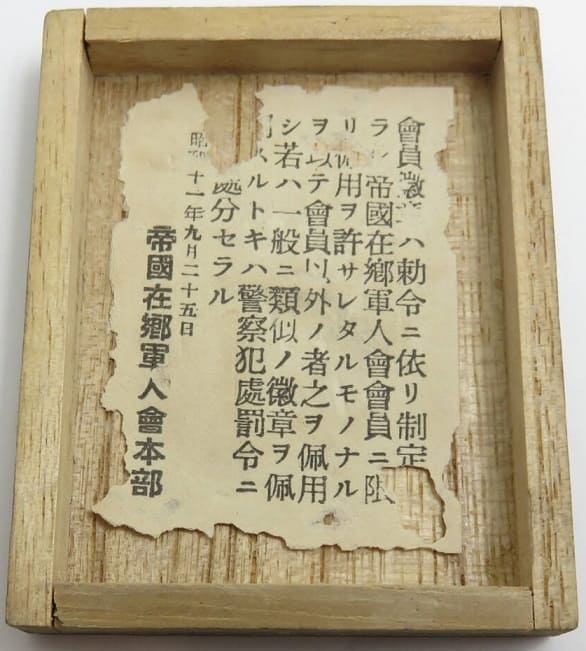 會員徽章ハ勅令ニ依リ制定
ラレ帝國在鄉軍人會會員ニ限
リ佩用ヲ許サレタルモノナル
ヲ以テ會員以外ノ者之ヲ佩用
シ若ハ一般ニ類似ノ徽章ヲ佩
スルトキハ警察犯處罰令ニ
處分セラル
昭和十一年九月二十五日
帝國在鄉軍人會本部